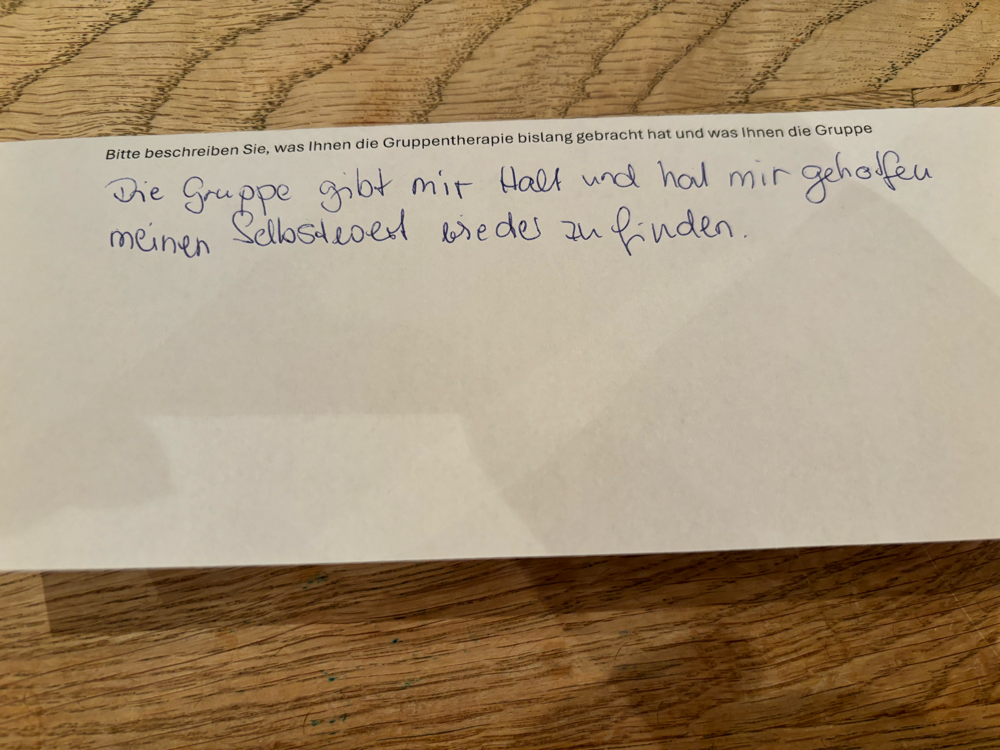 Bitte beschreiben Sie, was Ihnen die Gruppentherapie bislang gebracht hat und was Ihnen die Gruppe
Die Gruppe gibt mir Halt und hat mir geholfen
meinen Selbstwert wieder zu finden.